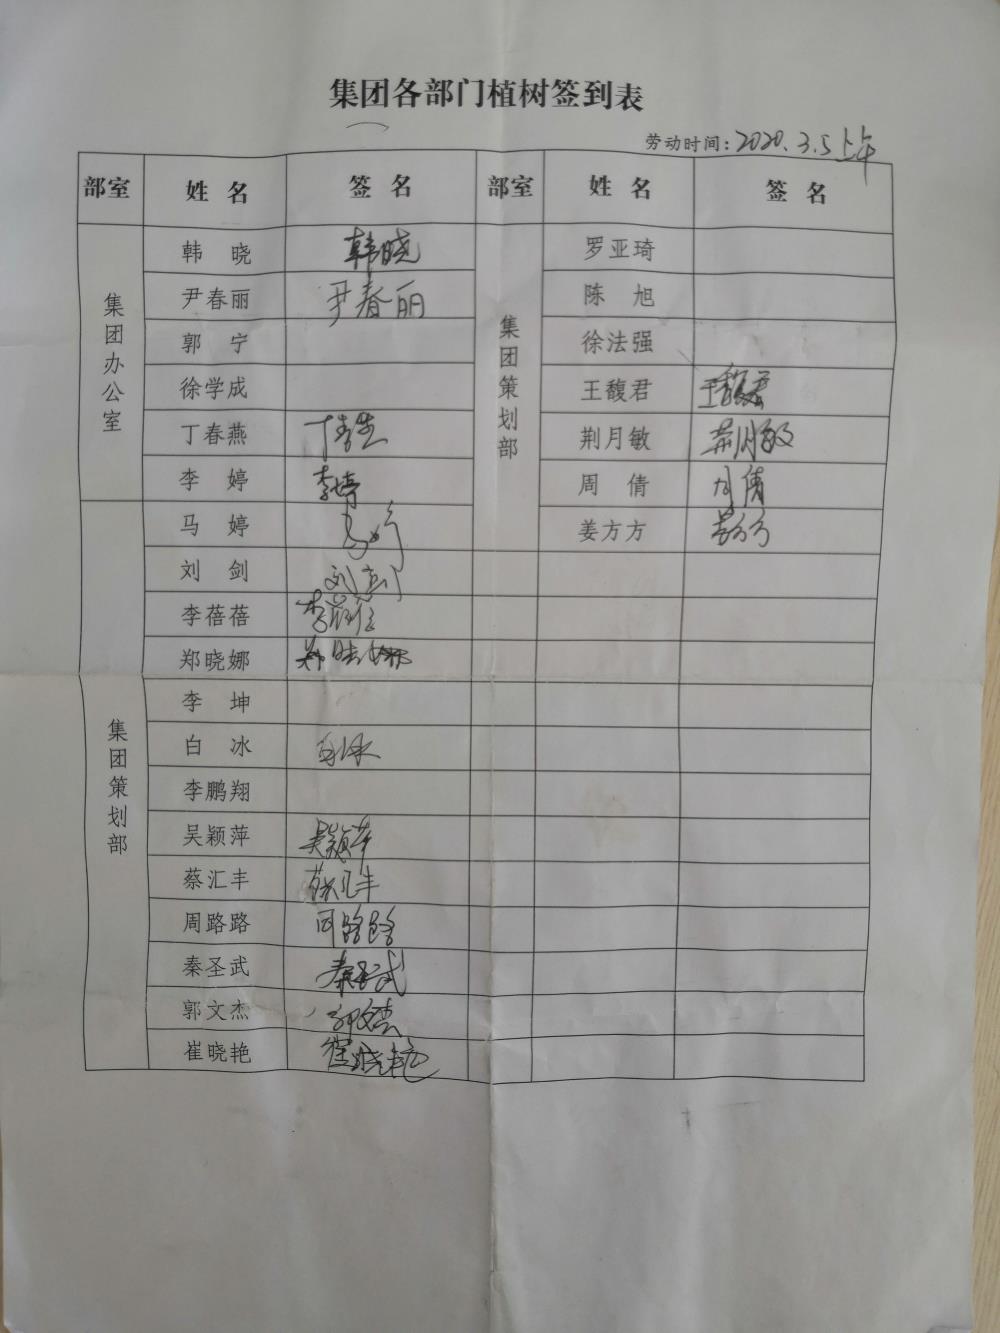 集团各部门植树签到表
劳动时间：2020.3.5上午
部室 姓 名 签 名 部室 姓 名 签 名
集团办公室 韩 晓 韩晓 集团策划部 罗亚琦
尹春丽 尹春丽 陈 旭
郭 宁 徐法强
徐学成 王馥君 王馥君
丁春燕 丁春燕 荆月敏 荆月敏
李 婷 李婷 周 倩 周倩
集团策划部 马 婷 马婷 姜方方 姜方方
刘 剑 刘剑
李蓓蓓 李蓓蓓
郑晓娜 郑晓娜
李 坤
白 冰 白冰
李鹏翔
吴颖萍 吴颖萍
蔡汇丰 蔡汇丰
周路路 周路路
秦圣武 秦圣武
郭文杰 郭文杰
崔晓艳 崔晓艳